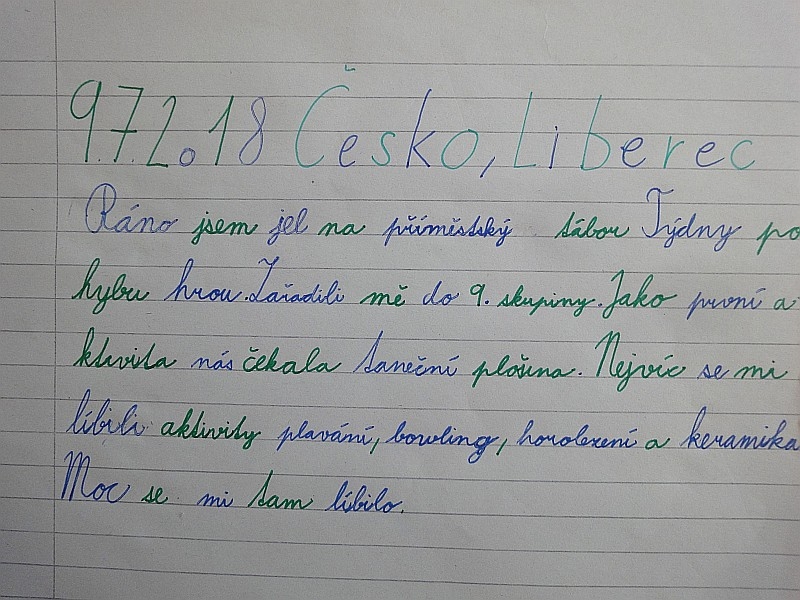 9.7.2018 Česko, Liberec
Ráno jsem jel na příměstský tábor Týdny po
hybu hrou. Zařadili mě do 9. skupiny. Jako první a
ktivita nás čekala taneční plošina. Nejvíc se mi
líbili aktivity plavání, bowling, horolezení a keramika
Moc se mi tam líbilo.